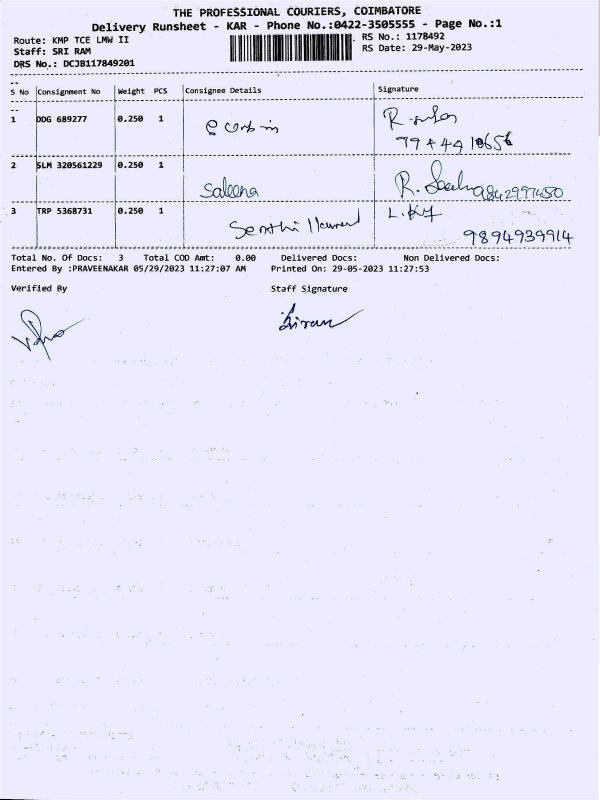 THE PROFESSIONAL COURIERS, COIMBATORE
Delivery Runsheet - KAR - Phone No.:0422-3505555 - Page No.:1
Route: KMP TCE LMW II
RS No.: 1178492
Staff: SRI RAM
RS Date: 29-May-2023
DRS No.: DCJB117849201
S No Consignment No Weight PCS Consignee Details Signature
1 DDG 689277 0.250 1
2 SLM 320561229 0.250 1 Saleena
3 TRP 5368731 0.250 1
9894939914
Total No. Of Docs: 3 Total COD Amt: 0.00 Delivered Docs: Non Delivered Docs:
Entered By :PRAVEENAKAR 05/29/2023 11:27:07 AM Printed On: 29-05-2023 11:27:53
Verified By Staff Signature